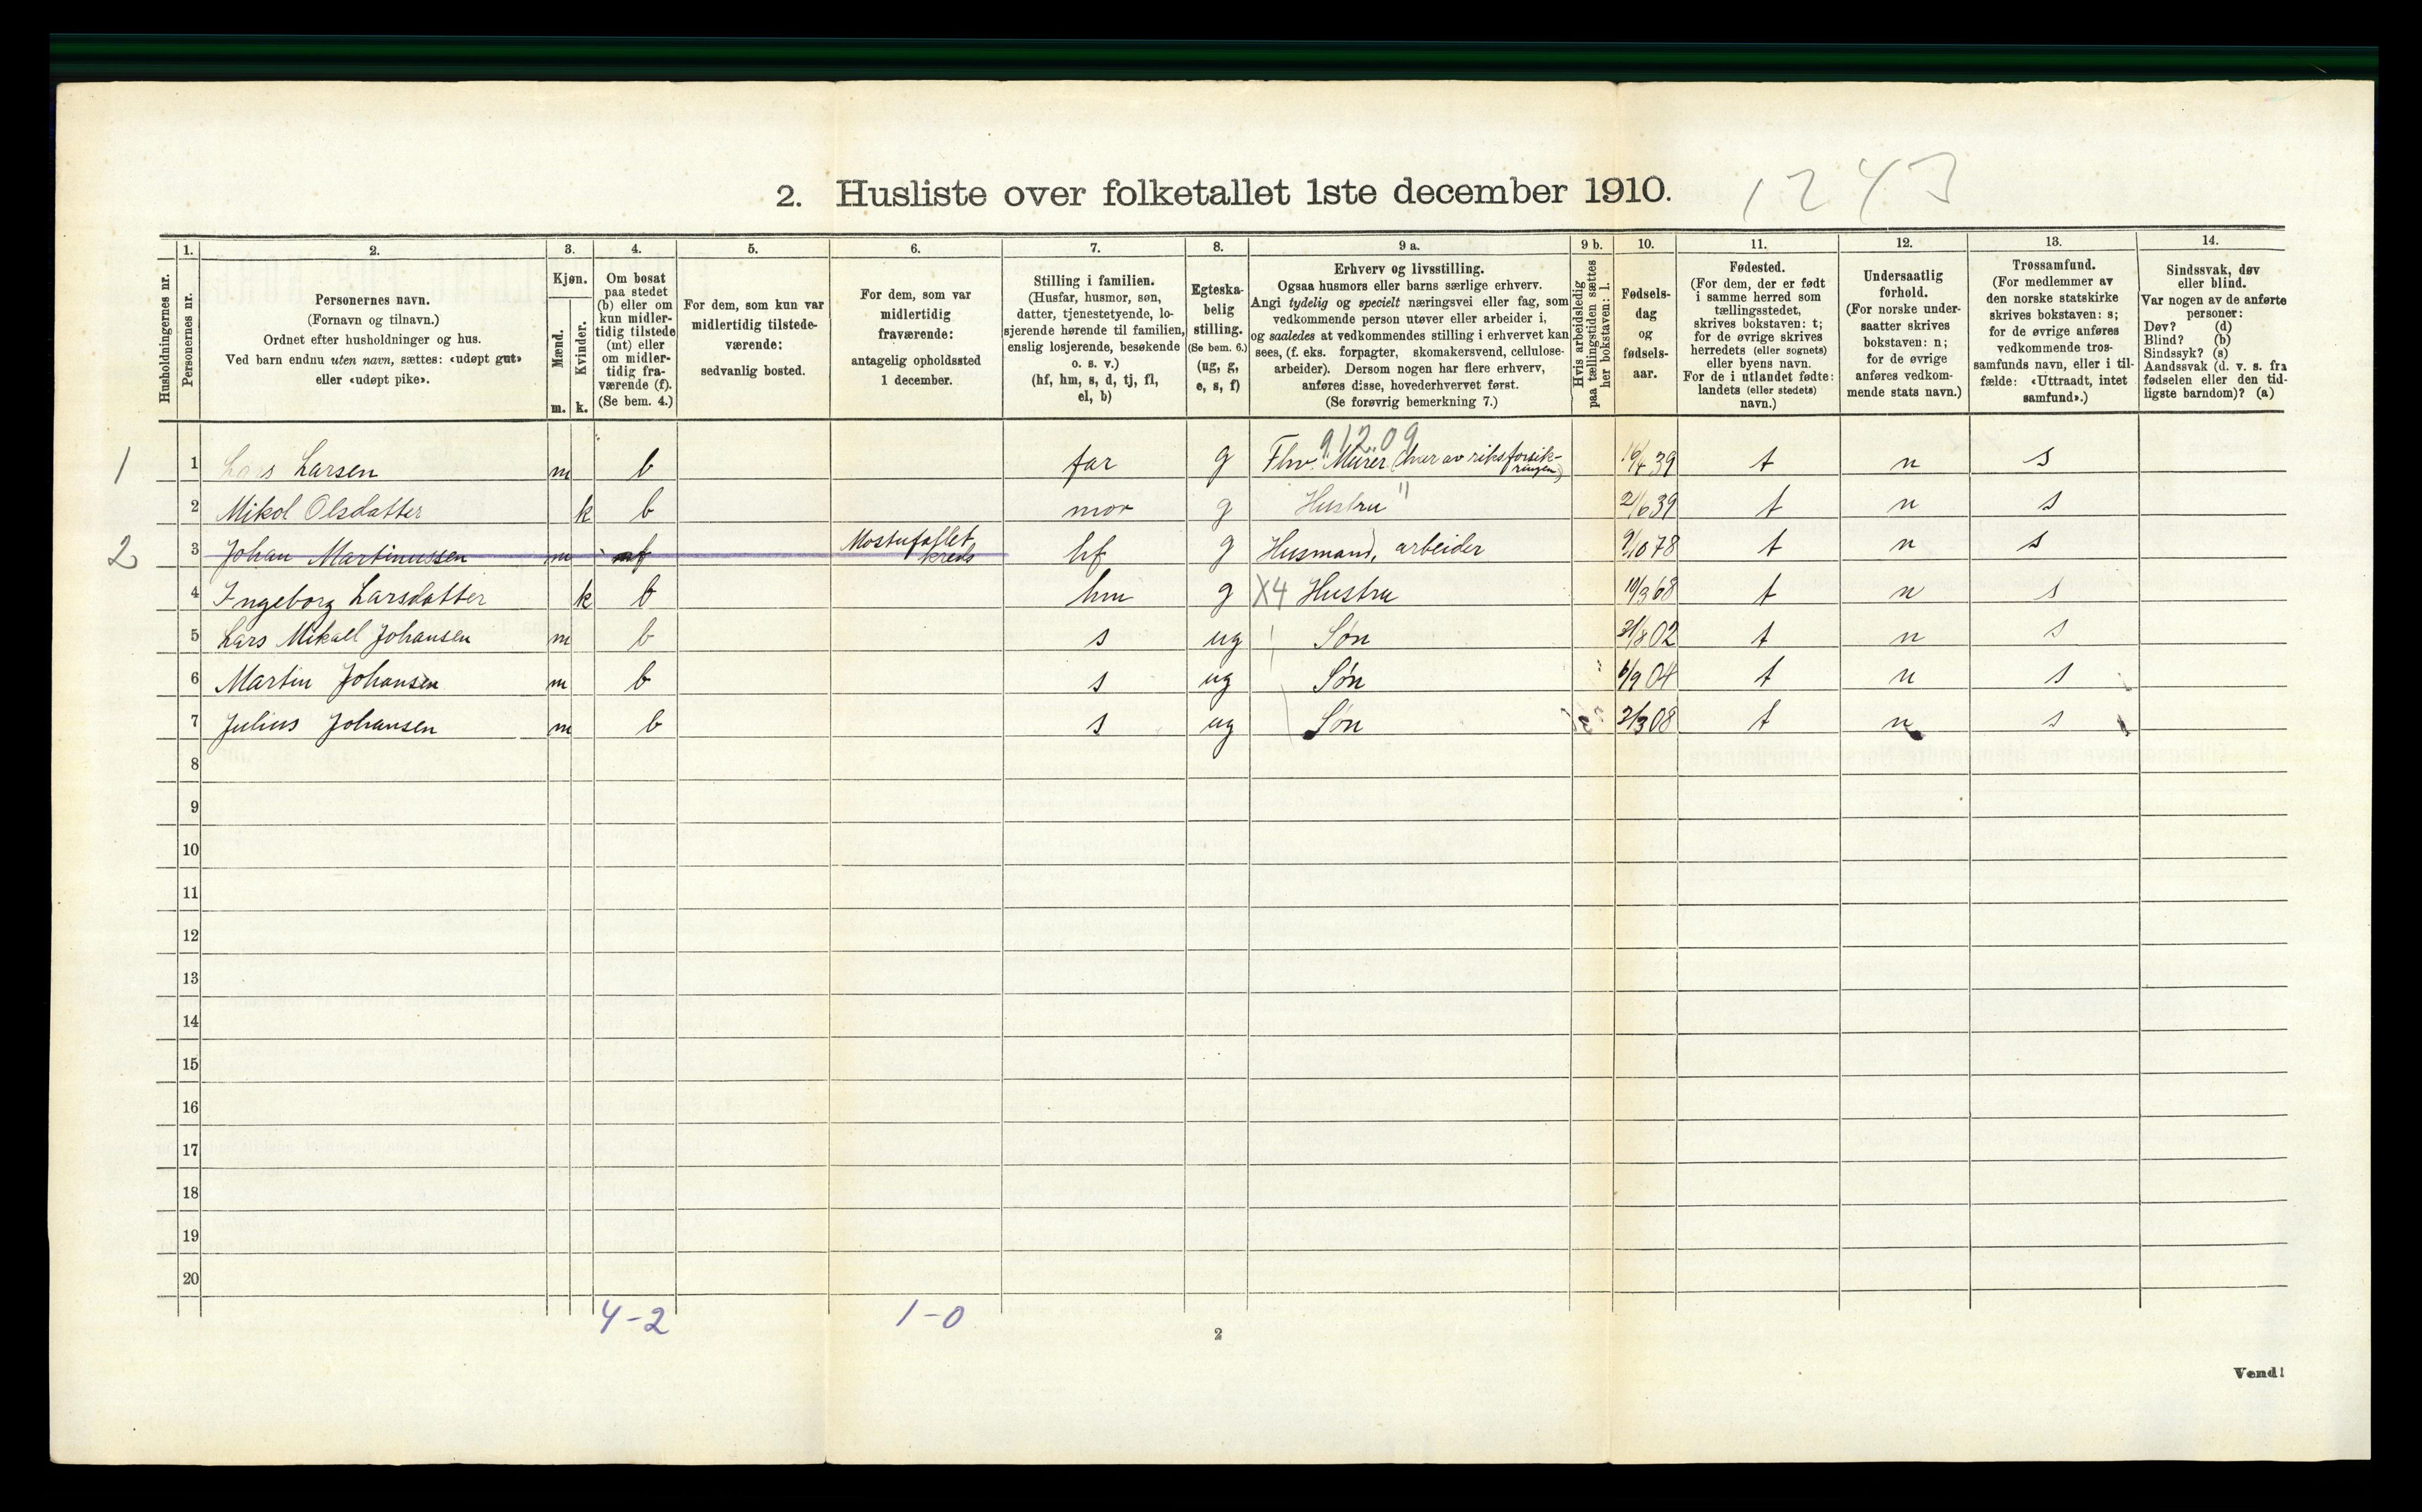 2. Husliste over folketallet 1ste december 1910. 1243
1. 2. 3. 4. 5. 6. 7. 8. 9 a. 9 b. 10. 11. 12. 13. 14.
Husholdningernes nr.
Personernes nr.
Personernes navn.
(Fornavn og tilnavn.)
Ordnet efter husholdninger og hus.
Ved barn endnu uten navn, sættes: «udøpt gut»
eller «udøpt pike».
Kjøn.
Mænd.
Kvinder.
m. k.
Om bosat
paa stedet
(b) eller om
kun midler-
tidig tilstede
(mt) eller
om midler-
tidig fra-
værende (f).
(Se bem. 4.)
For dem, som kun var
midlertidig tilstede-
værende:
sedvanlig bosted.
For dem, som var
midlertidig
fraværende:
antagelig opholdssted
1 december.
Stilling i familien.
(Husfar, husmor, søn,
datter, tjenestetyende, lo-
sjerende hørende til familien,
enslig losjerende, besøkende
o. s. v.)
(hf, hm, s, d, tj, fl,
el, b)
Egteska-
belig
stilling.
(Se bem. 6.)
(ug, g,
e, s, f)
Erhverv og livsstilling.
Ogsaa husmors eller barns særlige erhverv.
Angi tydelig og specielt næringsvei eller fag, som
vedkommende person utøver eller arbeider i,
og saaledes at vedkommendes stilling i erhvervet kan
sees, (f. eks. forpagter, skomakersvend, cellulose-
arbeider). Dersom nogen har flere erhverv,
anføres disse, hovederhvervet først.
(Se forøvrig bemerkning 7.)
Hvis arbeidsledig
paa tællingstiden sættes
her bokstaven: l.
Fødsels-
dag
og
fødsels-
aar.
Fødested.
(For dem, der er født
i samme herred som
tællingsstedet,
skrives bokstaven: t;
for de øvrige skrives
herredets (eller sognets)
eller byens navn.
For de i utlandet fødte:
landets (eller stedets)
navn.)
Undersaatlig
forhold.
(For norske under-
saatter skrives
bokstaven: n;
for de øvrige
anføres vedkom-
mende stats navn.)
Trossamfund.
(For medlemmer av
den norske statskirke
skrives bokstaven: s;
for de øvrige anføres
vedkommende tros-
samfunds navn, eller i til-
fælde: «Uttraadt, intet
samfund».)
Sindssvak, døv
eller blind.
Var nogen av de anførte
personer:
Døv? (d)
Blind? (b)
Sindssyk? (s)
Aandssvak (d. v. s. fra
fødselen eller den tid-
ligste barndom)? (a)
91209
1 1 Lars Larsen m b far g Fhv. Murer (hver av riksforsik-
ringen) 16/4 39 t n s
2 Mikol Olsdatter k b mor g Hustru " 21/6 39 t n s
2 3 Johan Martinussen m f Mostufallet
kreds hf g Husmand, arbeider 9/10 78 t n s
4 Ingeborg Larsdatter k b hm g X4 Hustru 10/3 68 t n s
5 Lars Mikael Johansen m b s ug Søn 31/8 02 t n s
6 Martin Johansen m b s ug Søn 6/9 04 t n s
7 Julius Johansen m b s ug Søn 2/3 08 t n s
8
9
10
11
12
13
14
15
16
17
18
19
20
4-2 1-0
2
Vend!